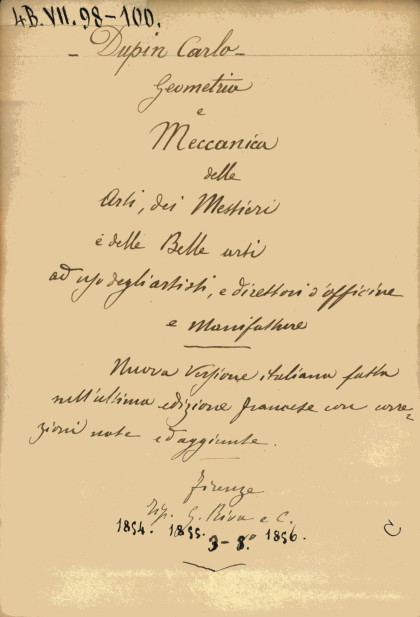 4B.VII.98-100.
- Dupin Carlo -
Geometria
e
Meccanica
delle
Arti, dei Mestieri
e delle Belle arti
ad uso degli artisti, e direttori d'officine
e Manifatture
Nuova versione italiana fatta
nell'ultima edizione francese con corre=
zioni note ed aggiunte.
Firenze
Tip. G. Riva e C.
1854. 1855. 1856.
3-8°